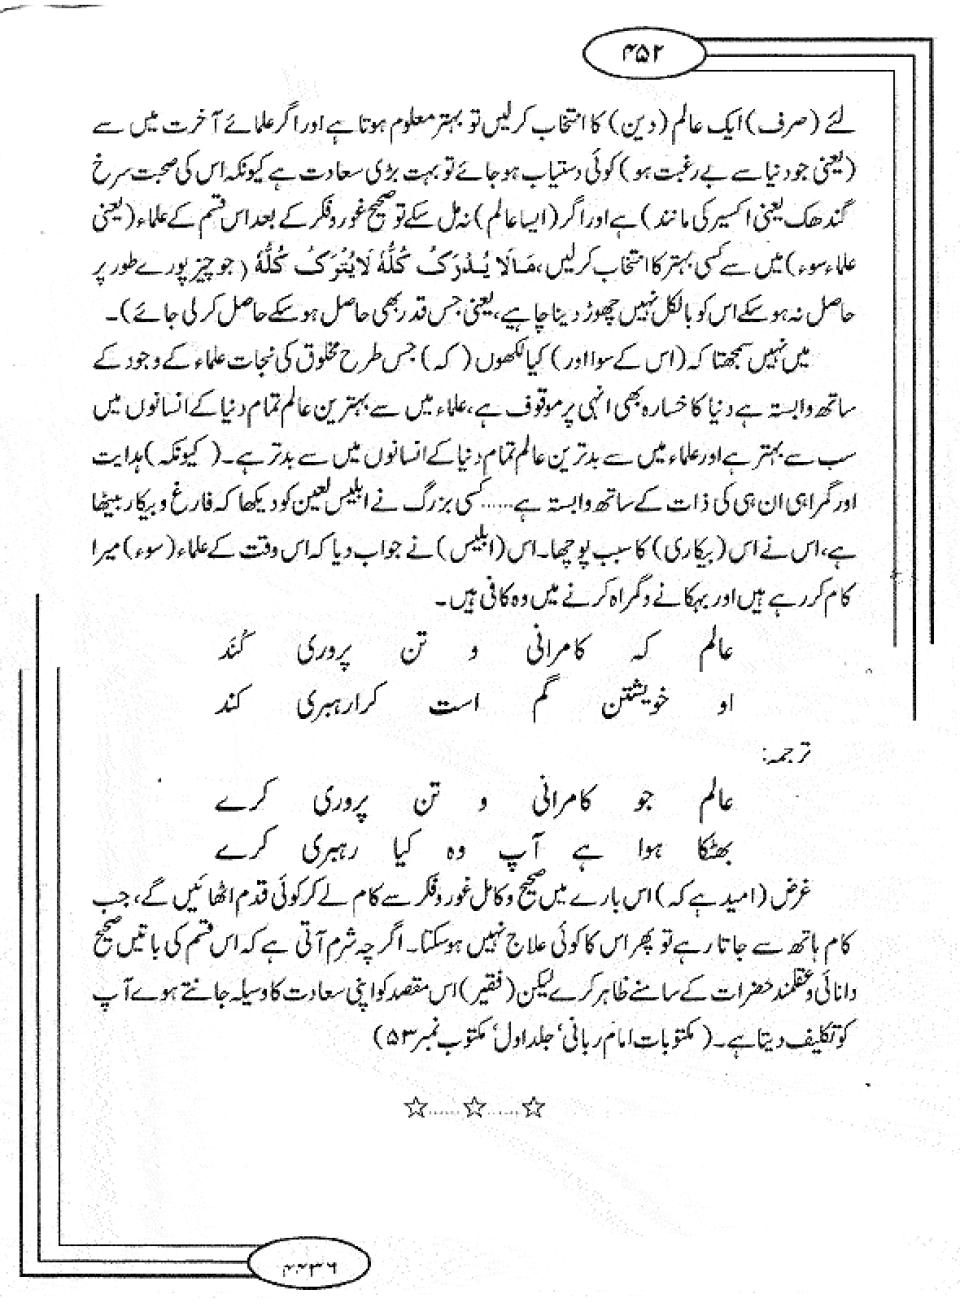 ۴۵۲
لئے (صرف) ایک عالم (دین) کا انتخاب کرلیں تو بہتر معلوم ہوتا ہے اور اگر علمائے آخرت میں سے
(یعنی جو دنیا سے بے رغبت ہو) کوئی دستیاب ہو جائے تو بہت بڑی سعادت ہے کیونکہ اس کی صحبت سرخ
گندھک یعنی اکسیر کی مانند) ہے اور اگر (ایسا عالم) نہ مل سکے تو صحیح غور و فکر کے بعد اس قسم کے علماء (یعنی
علماء سوء) میں سے کسی بہتر کا انتخاب کرلیں، مَالَا یُدْرَکُ کُلُّہٗ لَا یُتْرَکُ کُلُّہٗ (جو چیز پورے طور پر
حاصل نہ ہو سکے اس کو بالکل نہیں چھوڑ دینا چاہیے، یعنی جس قدر بھی حاصل ہو سکے حاصل کر لی جائے)۔
میں نہیں سمجھتا کہ (اس کے سوا اور) کیا لکھوں (کہ) جس طرح مخلوق کی نجات علماء کے وجود کے
ساتھ وابستہ ہے دنیا کا خسارہ بھی انہی پر موقوف ہے، علماء میں سے بہترین عالم تمام دنیا کے انسانوں میں
سب سے بہتر ہے اور علماء میں سے بدترین عالم تمام دنیا کے انسانوں میں سے بدتر ہے۔ (کیونکہ) ہدایت
اور گمراہی ان ہی کی ذات کے ساتھ وابستہ ہے...... کسی بزرگ نے ابلیس لعین کو دیکھا کہ فارغ و بیکار بیٹھا
ہے، اس نے اس (بیکاری) کا سبب پوچھا۔ اس (ابلیس) نے جواب دیا کہ اس وقت کے علماء (سوء) میرا
کام کر رہے ہیں اور بہکانے و گمراہ کرنے میں وہ کافی ہیں۔
عالم کہ کامرانی و تن پروری کُنَد
او خویشتن گم است کرا رہبری کند
ترجمہ:
عالم جو کامرانی و تن پروری کرے
بھٹکا ہوا ہے آپ وہ کیا رہبری کرے
غرض (امید ہے کہ) اس بارے میں صحیح و کامل غور و فکر سے کام لے کر کوئی قدم اٹھائیں گے، جب
کام ہاتھ سے جاتا رہے تو پھر اس کا کوئی علاج نہیں ہو سکتا۔ اگر چہ شرم آتی ہے کہ اس قسم کی باتیں صحیح
دانائی و عقلمند حضرات کے سامنے ظاہر کرے لیکن (فقیر) اس مقصد کو اپنی سعادت کا وسیلہ جانتے ہوے آپ
کو تکلیف دیتا ہے۔ (مکتوبات امام ربانی' جلد اول' مکتوب نمبر ۵۳)
☆......☆......☆